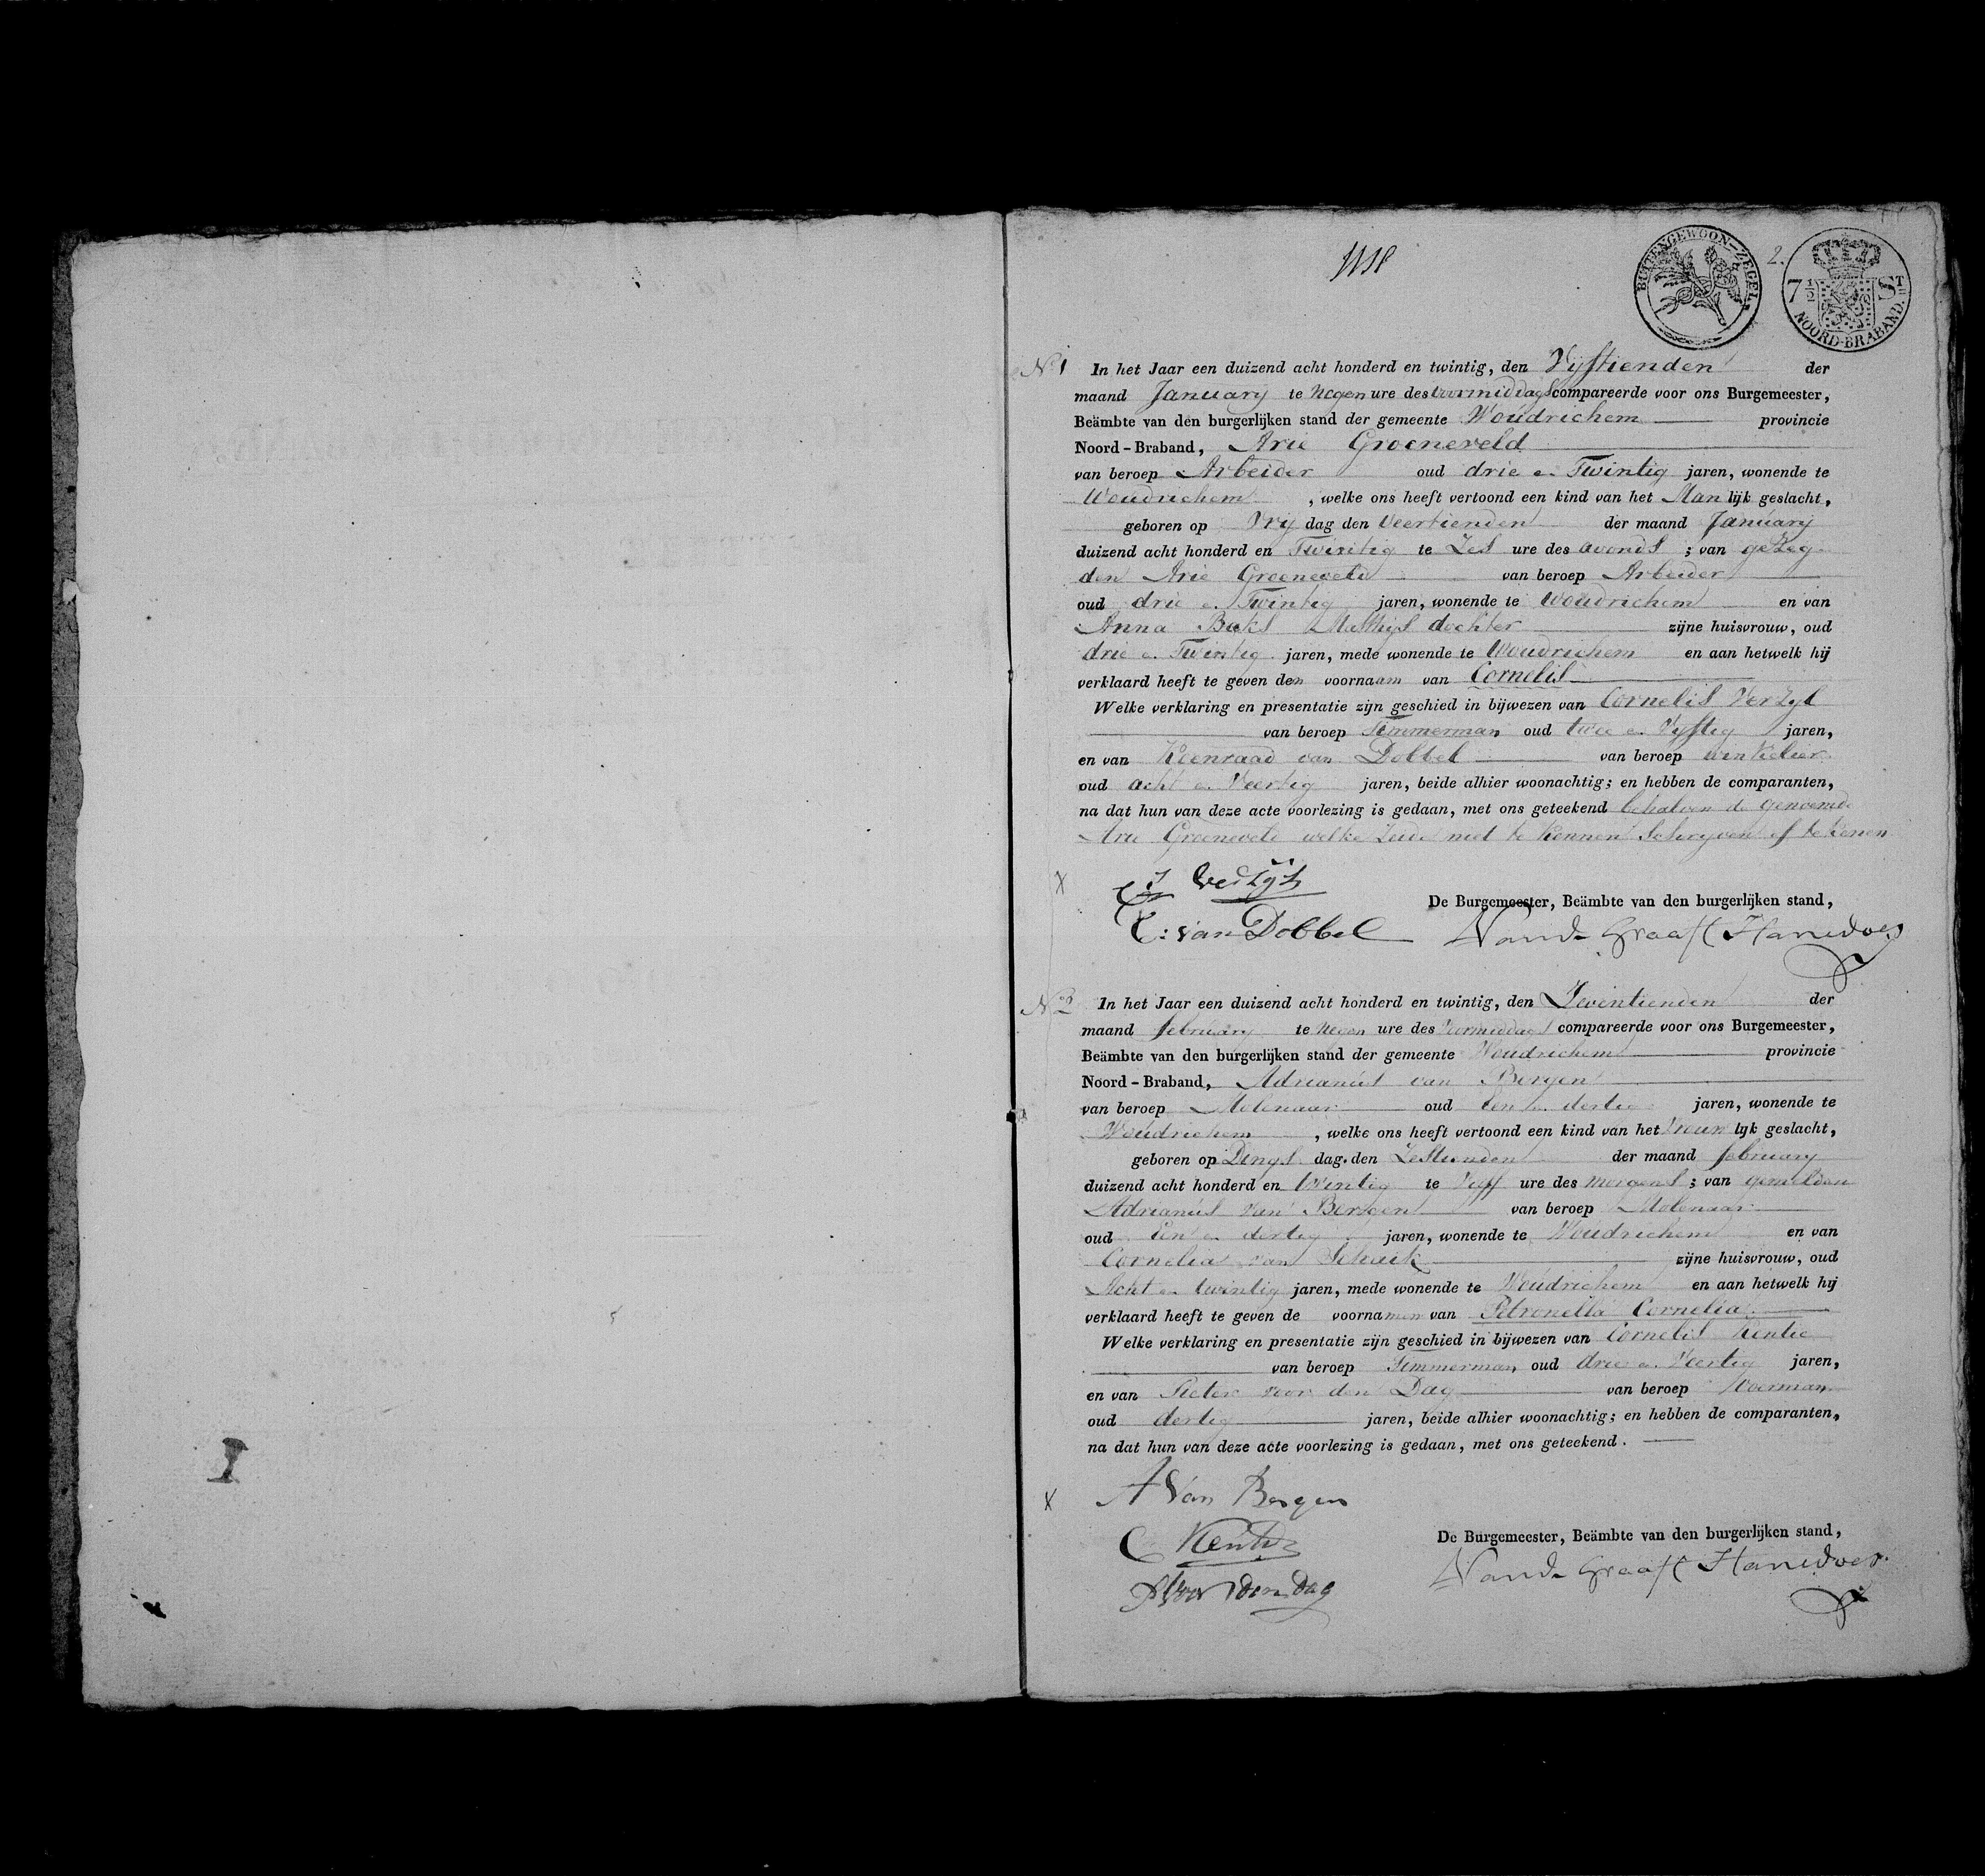 BUITENGEWOON-ZEGEL
2.
7 1/2 ST
NOORD-BRABAND.
No 1 In het Jaar een duizend acht honderd en twintig, den Vijftienden der
maand January te Negen ure des voormiddags compareerde voor ons Burgemeester,
Beämbte van den burgerlijken stand der gemeente Woudrichem provincie
Noord-Braband, Arie Groeneveld
van beroep Arbeider oud drie en Twintig jaren, wonende te
Woudrichem, welke ons heeft vertoond een kind van het Manlijk geslacht,
geboren op Vrijdag den Veertienden der maand January
duizend acht honderd en Twintig te Zes ure des avonds; van gezeg-
den Arie Groeneveld van beroep Arbeider
oud drie en Twintig jaren, wonende te Woudrichem en van
Anna Buks Matthijs dochter zijne huisvrouw, oud
drie en Twintig jaren, mede wonende te Woudrichem en aan hetwelk hij
verklaard heeft te geven den voornaam van Cornelis
Welke verklaring en presentatie zijn geschied in bijwezen van Cornelis Verzyl
van beroep Timmerman oud twee en Vyftig jaren,
en van Koenraad van Dobbel van beroep winkelier
oud acht en Veertig jaren, beide alhier woonachtig; en hebben de comparanten,
na dat hun van deze acte voorlezing is gedaan, met ons geteekend behalven de genoemde
Arie Groeneveld welke Zeide niet te kunnen Schryven of tekenen
C: van Dobbel
De Burgemeester, Beämbte van den burgerlijken stand,
Vand Graaff Hanedoes
No 2 In het Jaar een duizend acht honderd en twintig, den Zeventienden der
maand february te Negen ure des Voormiddags compareerde voor ons Burgemeester,
Beämbte van den burgerlijken stand der gemeente Woudrichem provincie
Noord-Braband, Adrianus van Bergen
van beroep Molenaar oud Een en dertig jaren, wonende te
Woudrichem, welke ons heeft vertoond een kind van het Vrouwlijk geslacht,
geboren op Dings dag den Zestienden der maand february
duizend acht honderd en twintig te Vyff ure des morgens; van gemelden
Adrianus van Bergen van beroep Molenaar
oud Een en dertig jaren, wonende te Woudrichem en van
Cornelia van Schaik zijne huisvrouw, oud
Acht en twintig jaren, mede wonende te Woudrichem en aan hetwelk hij
verklaard heeft te geven de voornamen van Petronella Cornelia
Welke verklaring en presentatie zijn geschied in bijwezen van Cornelis Kentie
van beroep Timmerman, oud drie en Veertig jaren,
en van Pieter voor den Dag van beroep Voerman
oud dertig jaren, beide alhier woonachtig; en hebben de comparanten,
na dat hun van deze acte voorlezing is gedaan, met ons geteekend.
A Van Bergen
C Kentie
P Voor den dag
De Burgemeester, Beämbte van den burgerlijken stand,
Vand Graaff Hanedoes